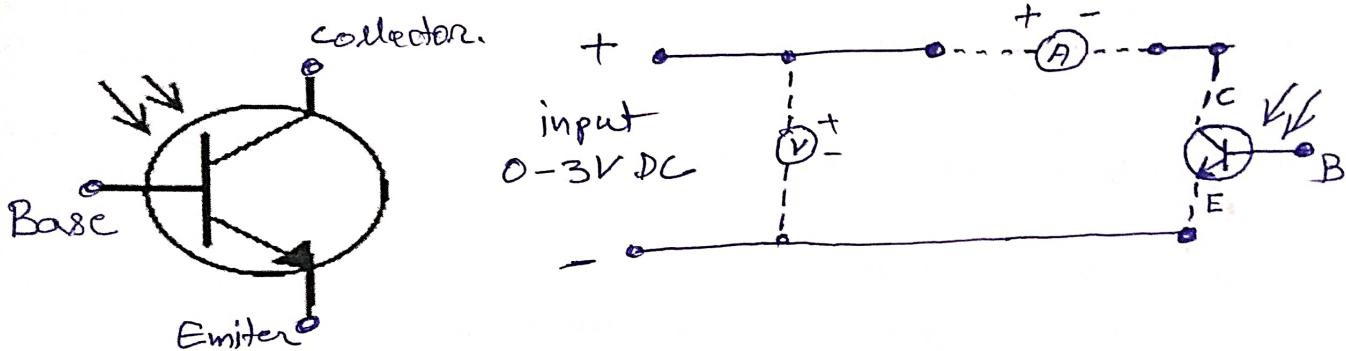 collector.
Base
Emiter
+
input
0-3V DC
-
+ -
A
V
+
-
C
B
E